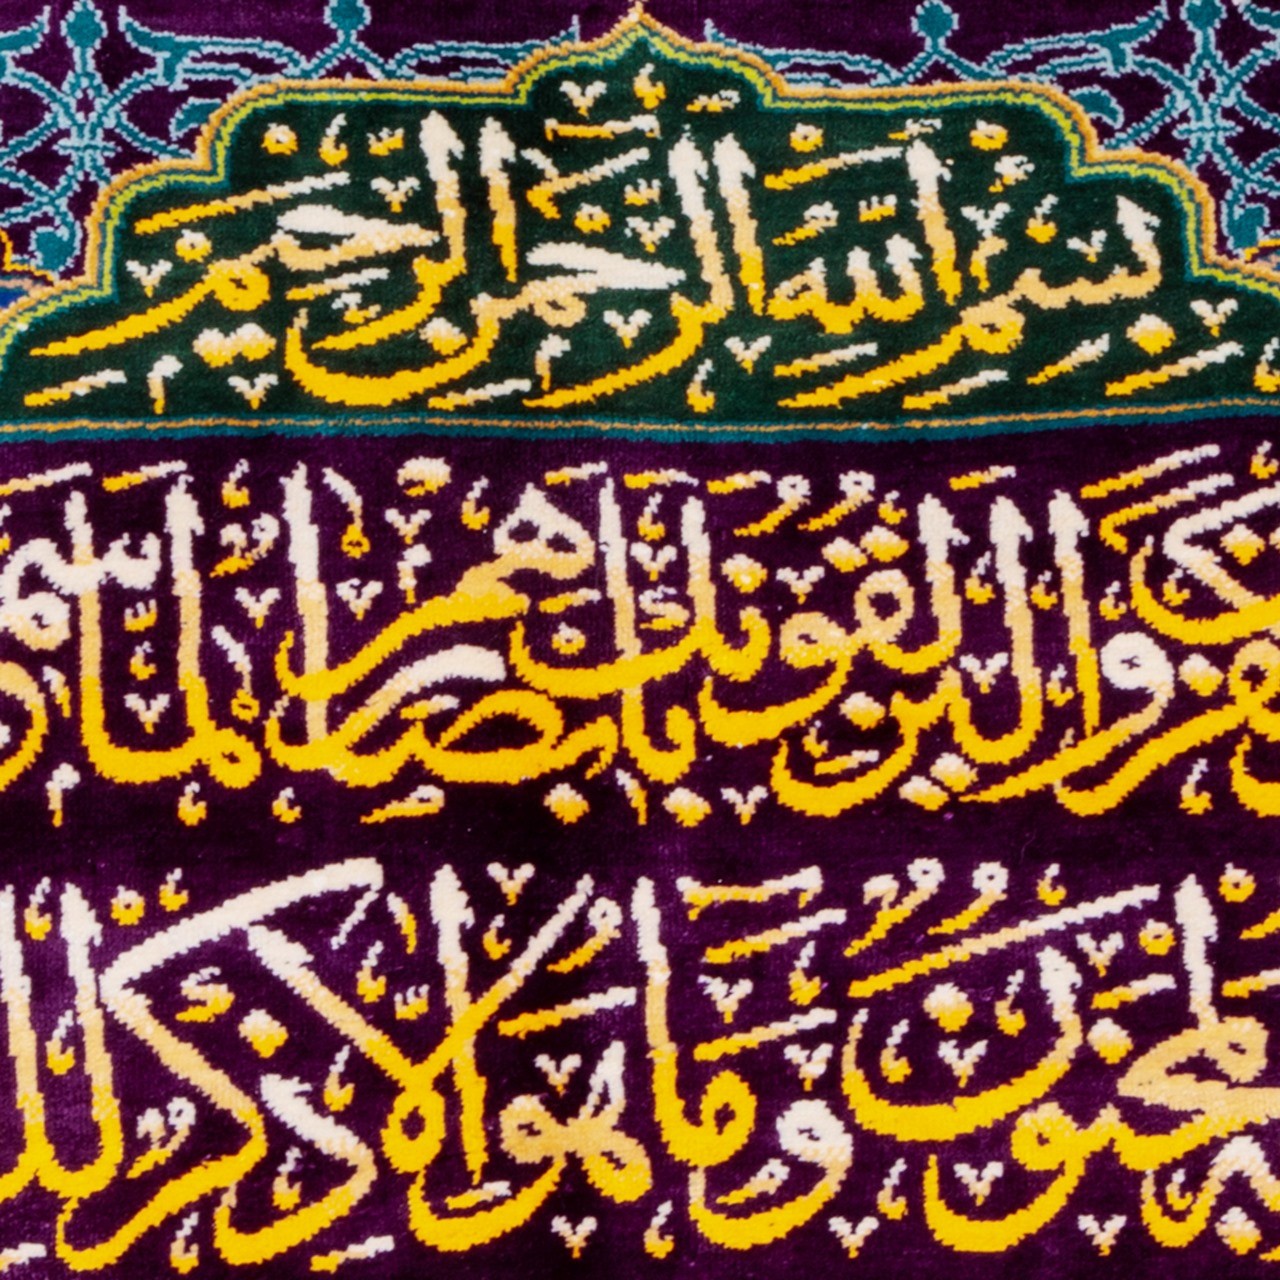 بِسْمِ اللَّهِ الرَّحْمٰنِ الرَّحِيمِ
كَفَرُوا لَيُزْلِقُونَكَ بِأَبْصَارِهِمْ لَمَّا سم
لمَجْنُونٌ وَمَا هُوَ إِلَّا ذِكْرٌ لِل